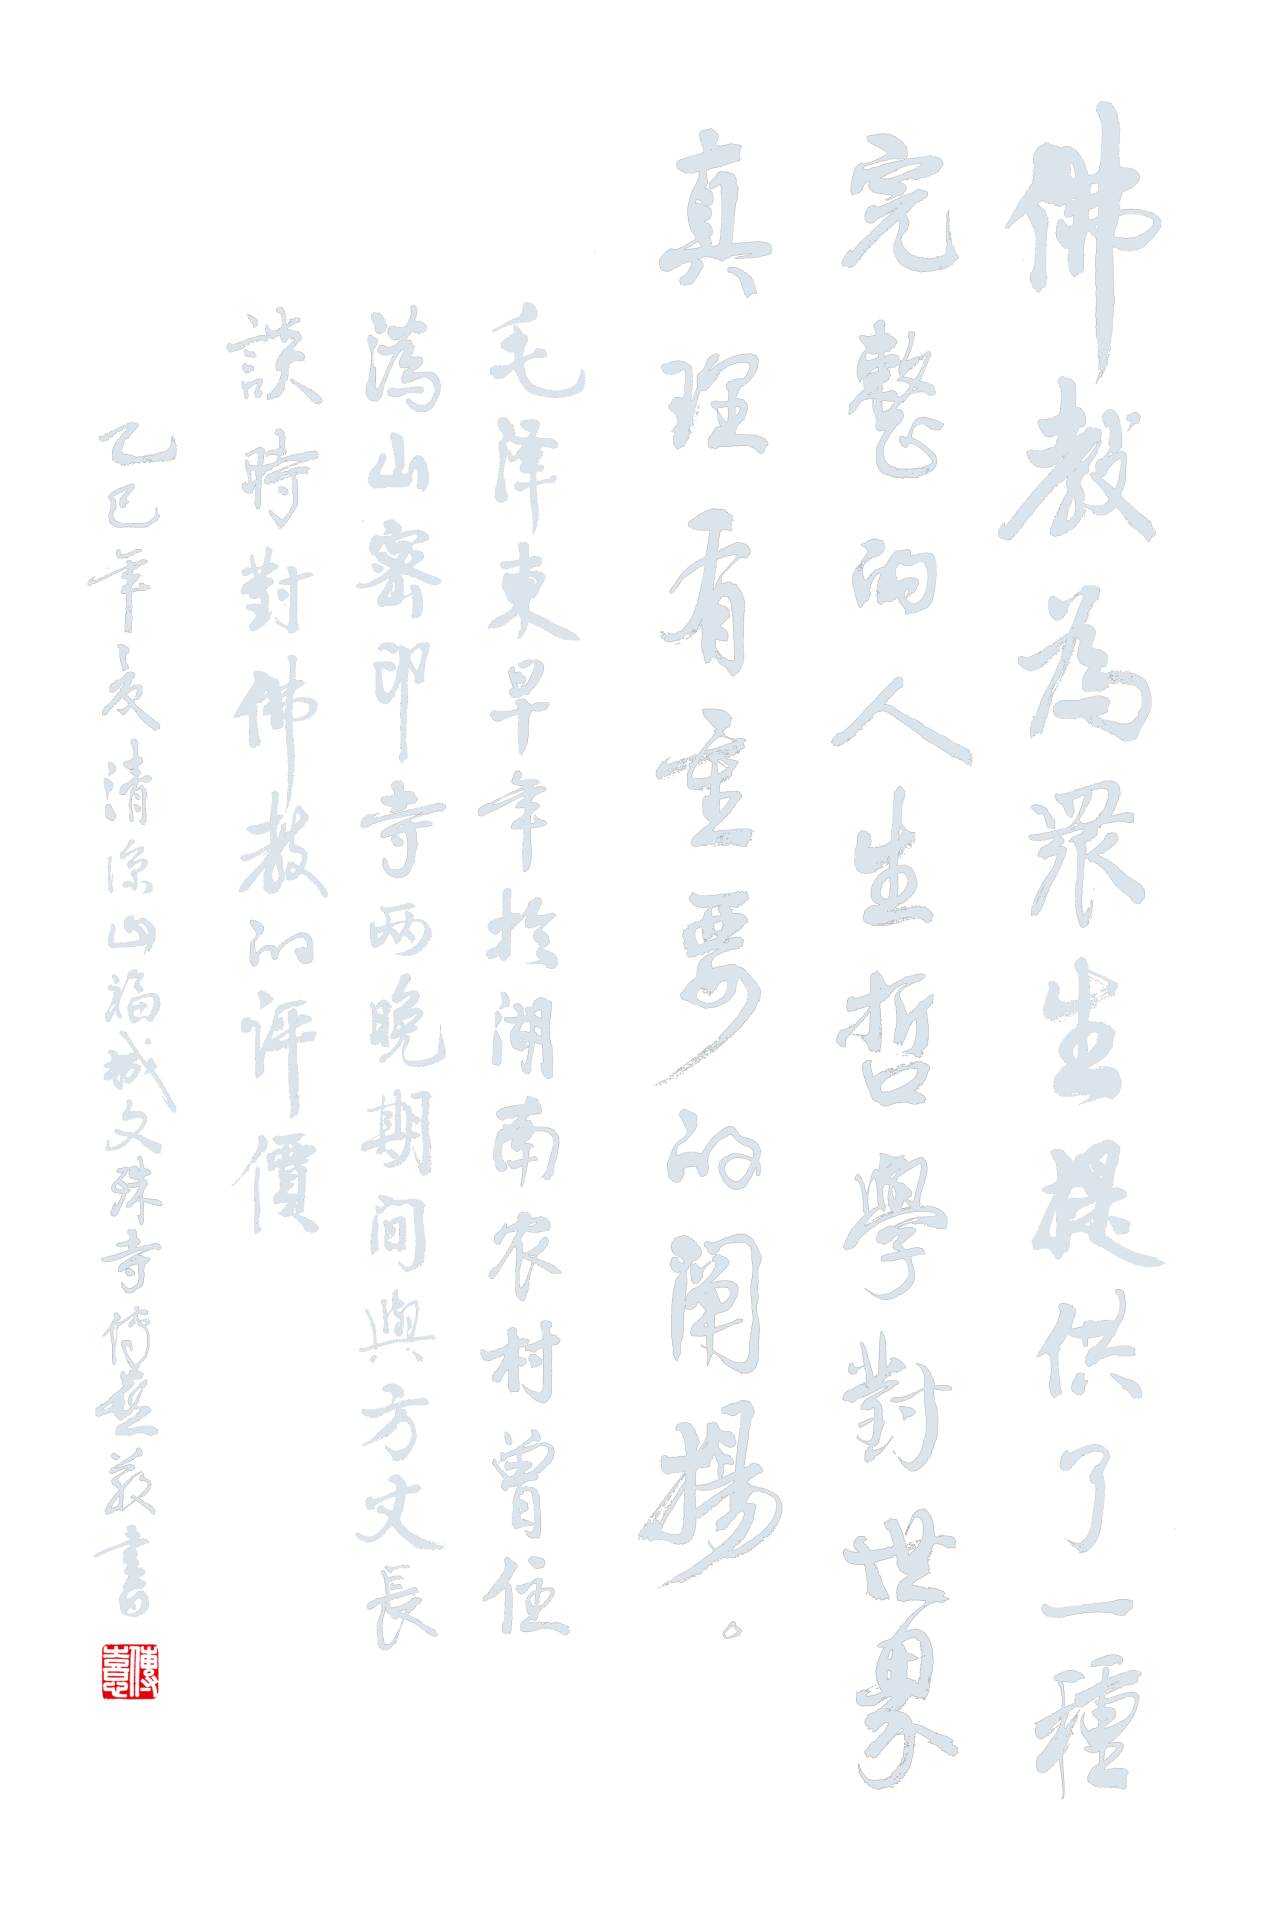 佛教為眾生提供了一種
完整的人生哲學對世界
真理有重要的阐揚。
毛泽東早年於湖南农村曾住
溈山密印寺两晚期间與方丈長
談時對佛教的评價
乙巳年夏清凉山福城文殊寺傳慈敬書
傳意